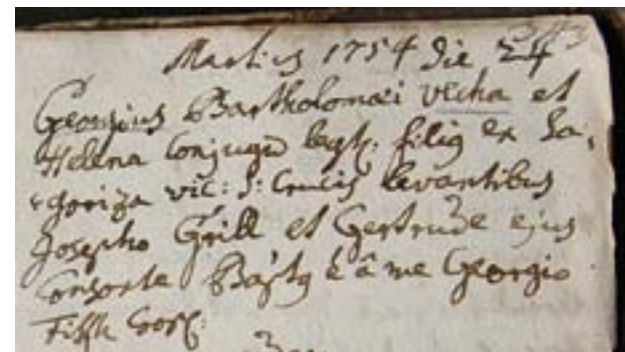 343
Martius 1754 die 24
Georgius Bartholomæi Vecha et
Helena Conjugū legt: filiq ex Za,
goriza vic: S: Crucis levantibus
Josepho Grill et Gertrude ejus
Consorte Baptq ē â me Georgio
Coop: